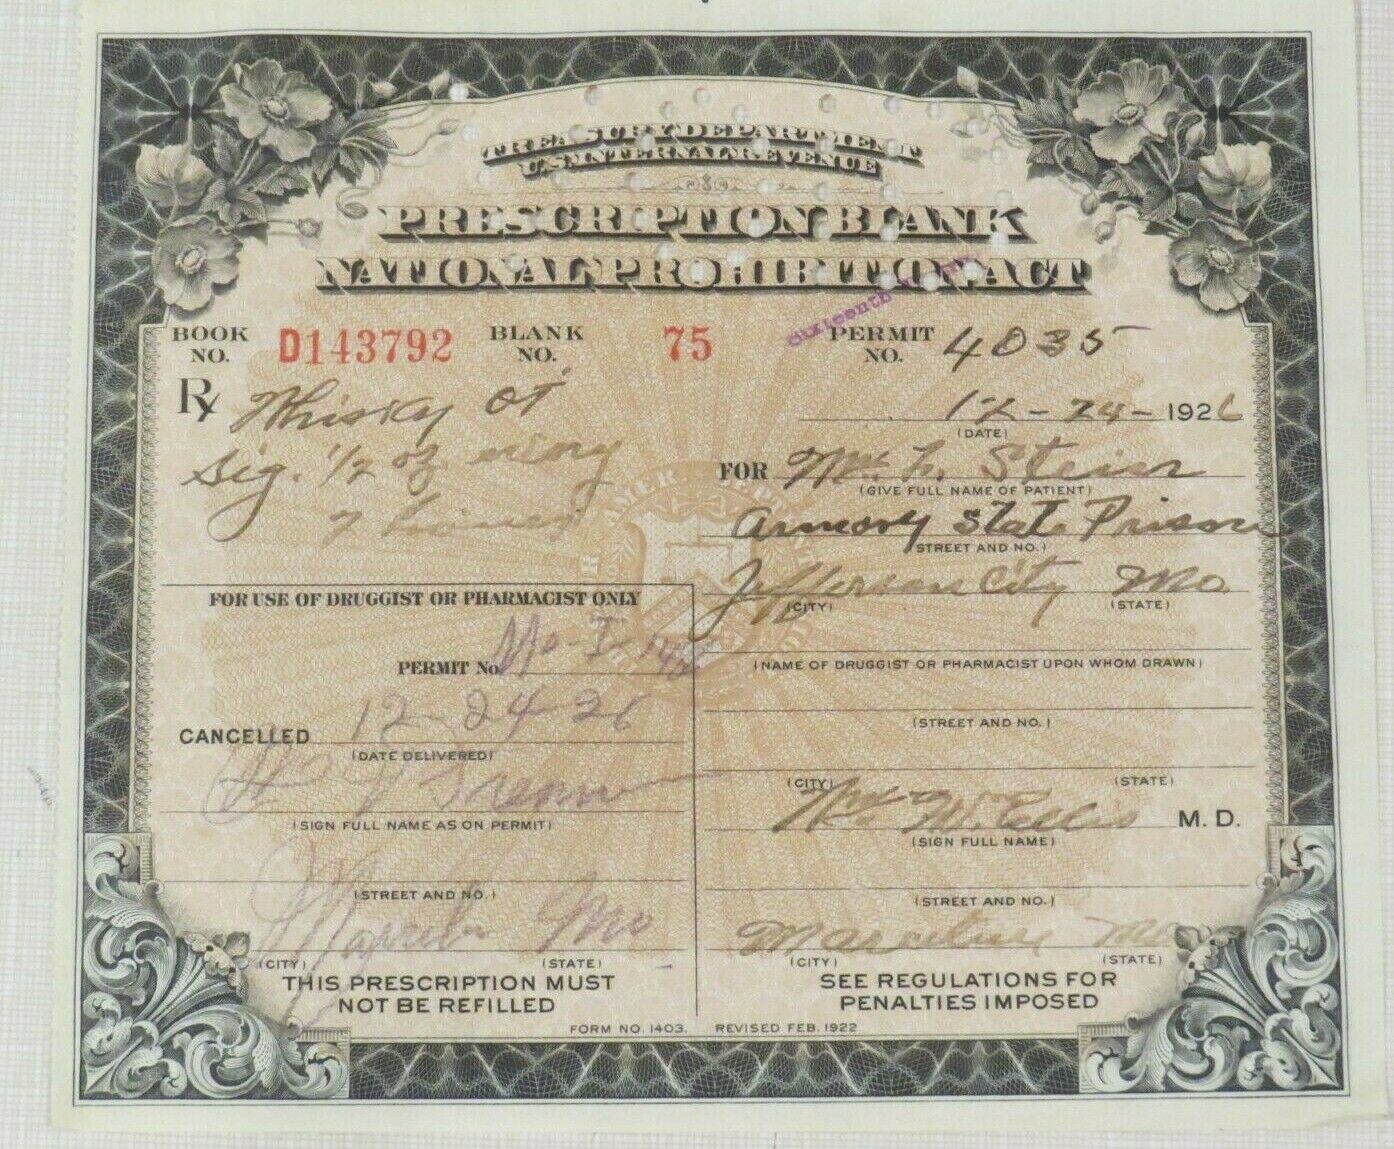 TREASURY DEPARTMENT
U.S. INTERNAL REVENUE
PRESCRIPTION BLANK
NATIONAL PROHIBITION ACT
BOOK NO. D143792 BLANK NO. 75 PERMIT NO. 4035
Rx Whisky
Sig. 1/2 oz. every
12-24-1926
(DATE)
FOR Stein
(GIVE FULL NAME OF PATIENT)
Armory State Prison
(STREET AND NO.)
Jefferson City Mo.
(CITY) (STATE)
FOR USE OF DRUGGIST OR PHARMACIST ONLY
PERMIT No.
(NAME OF DRUGGIST OR PHARMACIST UPON WHOM DRAWN)
(STREET AND NO.)
CANCELLED 12-24-26
(DATE DELIVERED)
(CITY) (STATE)
M. D.
(SIGN FULL NAME AS ON PERMIT)
(SIGN FULL NAME)
(STREET AND NO.)
(STREET AND NO.)
Mo
Mo
(CITY) (STATE)
(CITY) (STATE)
THIS PRESCRIPTION MUST
NOT BE REFILLED
SEE REGULATIONS FOR
PENALTIES IMPOSED
FORM NO. 1403. REVISED FEB. 1922